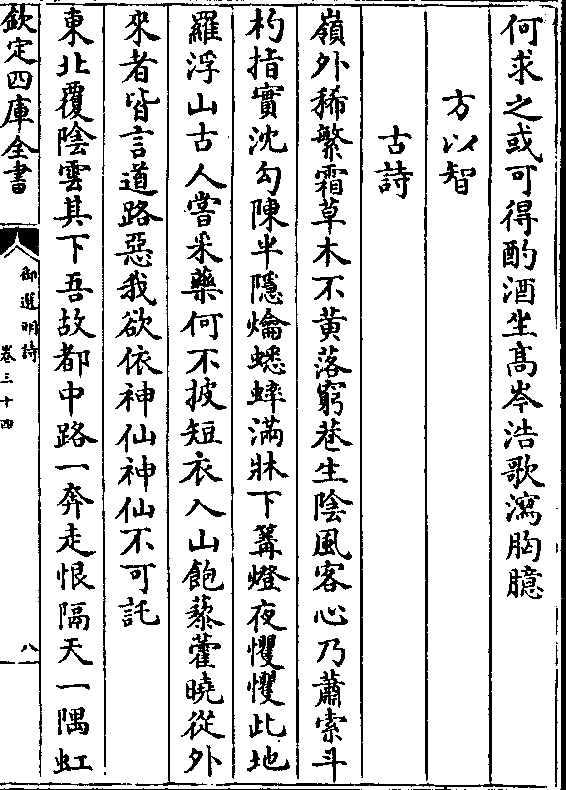 何求之或可得酌酒坐髙岑浩歌瀉胸臆
方以智
古詩
嶺外稀繁霜草木不黄落窮巷生陰風客心乃蕭索斗
杓指實沈勾陳半隱爚蟋蟀滿牀下篝燈夜懼懼此地
羅浮山古人嘗采藥何不披短衣入山飽藜藿曉從外
來者皆言道路惡我欲依神仙神仙不可託
東北覆陰雲其下吾故都中路一奔走恨隔天一隅虹
欽定四庫全書
御選明詩
卷三十四
八